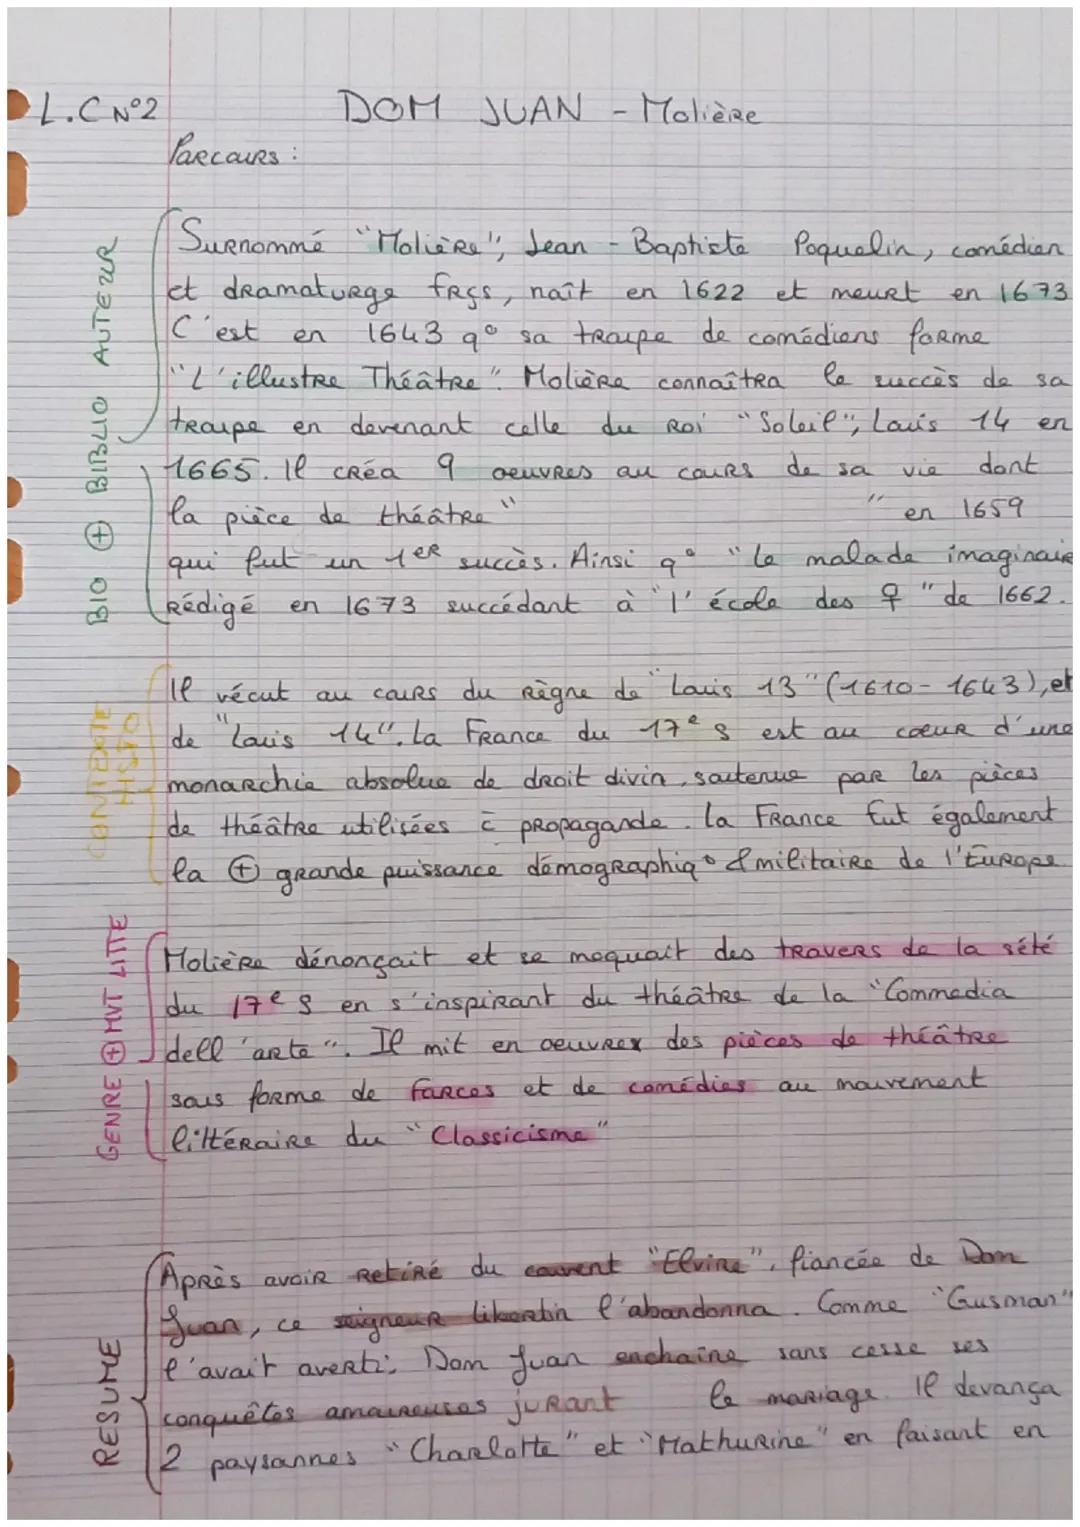 L.C N°2
DOM JUAN - Molière
Parcours :
BIO ⊕ BIBLIO AUTEUR
Surnommé "Molière", Jean-Baptiste Poquelin, comédien
et dramaturge frçs, naît en 1622 et meurt en 1673
C'est en 1643 q° sa troupe de comédiens forme
"L'illustre Théâtre". Molière connaîtra le succès de sa
troupe en devenant celle du Roi "Soleil", Louis 14 en
1665. Il créa 9 oeuvres au cours de sa vie dont
la pièce de théâtre " " en 1659
qui fut un 1er succès. Ainsi q° "le malade imaginaire
Rédigé en 1673 succédant à "l'école des ♀" de 1662.
CONTEXTE HISTO
Il vécut au cours du règne de "Louis 13" (1610-1643), et
de "Louis 14". La France du 17e s est au coeur d'une
monarchie absolue de droit divin, soutenue par les pièces
de théâtre utilisées c̄ propagande. La France fut également
la ⊕ grande puissance démographiq° & militaire de l'Europe.
GENRE ⊕ MVT LITTE
Molière dénonçait et se moquait des travers de la sété
du 17e s en s'inspirant du théâtre de la "Commedia
dell'arte". Il mit en oeuvrex des pièces de théâtre
sous forme de farces et de comédies au mouvement
littéraire du "Classicisme"
RESUME
Après avoir retiré du couvent "Elvire", fiancée de Dom
Juan, ce seigneur libertin l'abandonna. Comme "Gusman"
l'avait averti, Dom Juan enchaîne sans cesse ses
conquêtes amoureuses jurant le mariage. Il devança
2 paysannes "Charlotte" et "Mathurine" en faisant en